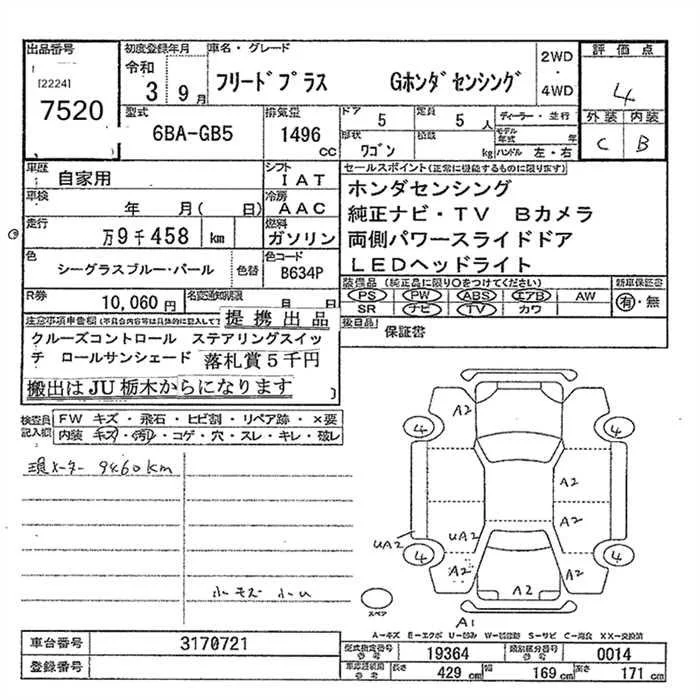 出品番号
[2224]
7520
初度登録年月
令和
3 9月
車名・グレード
フリードプラス Gホンダセンシング
2WD
・
4WD
評価点
4
外装 内装
C B
型式
6BA-GB5
排気量
1496
CC
ドア
5
定員
5 人
ディーラー・並行
形状
ワゴン
積載
kg
モデル年式 年
ハンドル 左・右
車歴
自家用
シフト
IAT
車検
年 月( 日)
冷房
AAC
走行
万9千458 km
燃料
ガソリン
色
シーグラスブルー・パール
色替
色コード
B634P
R券
10,060円
名変通知期限
月 日
セールスポイント(正常に機能するものに限ります)
ホンダセンシング
純正ナビ・TV Bカメラ
両側パワースライドドア
LEDヘッドライト
装備品(純正品に限り○をつけてください)
PS PW ABS エアB AW
SR ナビ TV カワ
新車保証書
有・無
後日品
保証書
注意事項申告欄(不具合内容等は具体的に記入して下さい)
提携出品
クルーズコントロール ステアリングスイッ
チ ロールサンシェード 落札賞5千円
搬出はJU栃木からになります
検査員
記入欄
FW キズ・飛石・ヒビ割・リペア跡・×要
内装 キズ・汚レ・コゲ・穴・スレ・キレ・破レ
現メーター 9460km
小キズ 小U
A2
4
4
A2
A2
UA2
UA2
4
4
A2
A2
A2
A1
スペア
A-キズ E-エクボ U-凹み W-補修跡 S-サビ C-腐食 XX-交換済
車台番号
3170721
登録番号
型式指定番号
19364
類別区分番号
0014
長さ
429 cm
幅
169 cm
高さ
171 cm